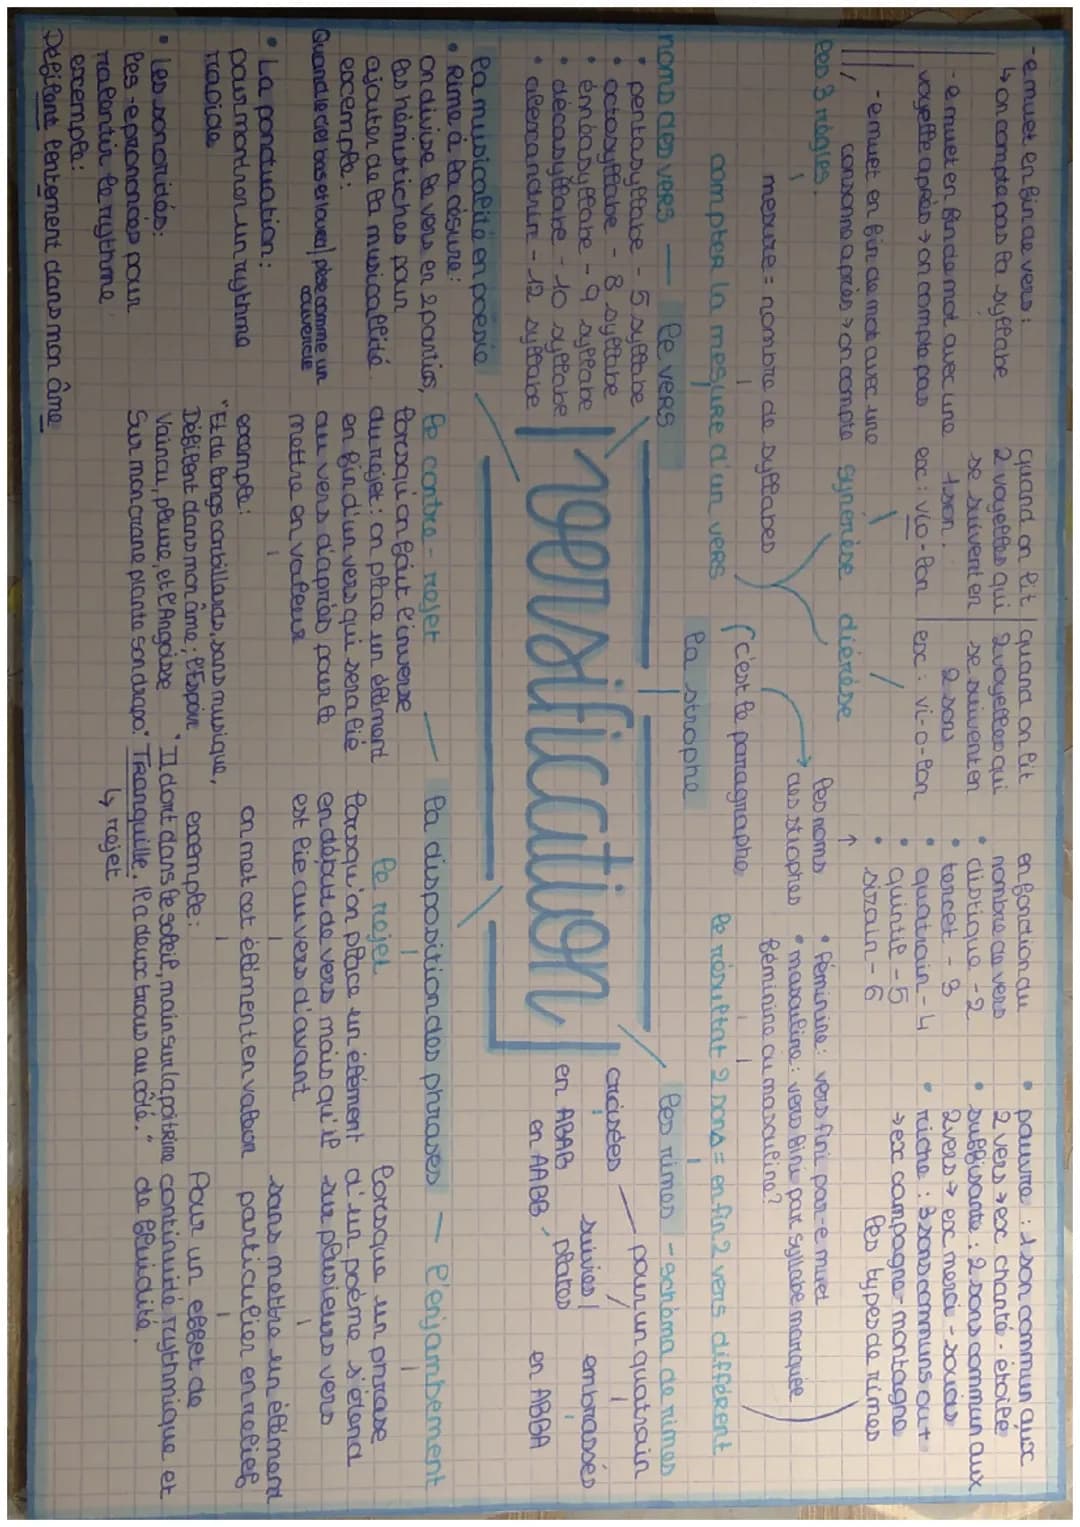 - e muet en fin de vers :
↳ on compte pas la syllabe
- e muet en fin de mot avec une
voyelle après → on compte pas
- e muet en fin de mot avec une
consonne après → on compte
les 3 règles
quand on lit
2 voyelles qui
se suivent en
1 son.
ex : vio-lon
synérèse
quand on lit
2 voyelles qui
se suivent en
2 sons
ex : vi-o-lon
diérèse
mesure = nombre de syllabes
compter la mesure d'un vers
en fonction du
nombre de vers
• distique - 2
• tercet - 3
• quatrain - 4
• quintil - 5
• sizain - 6
les noms
des strophes
c'est le paragraphe
la strophe
• pauvre : 1 son commun aux
2 vers → ex chanté - étoilée
• suffisante : 2 sons commun aux
2 vers → ex merci - soucis
• riche : 3 sons communs out
→ ex campagne - montagne
les types de rimes
• féminine : vers fini par -e muet
• masculine : vers fini par syllabe marquée
féminine ou masculine ?
le résultat 2 sons = en fin 2 vers différent
noms des vers — le vers
• pentasyllabe - 5 syllabe
• octosyllabe - 8 syllabe
• énnéasyllabe - 9 syllabe
• décasyllabe - 10 syllabe
• alexandrin - 12 syllabe
les rimes - schéma de rimes
pour un quatrain
croisées
en ABAB
suivies / plates
en AABB
embrassés
en ABBA
versification
la musicalité en poésie
• Rime à la césure :
on divise le vers en 2 parties,
les hémistiches pour
ajouter de la musicalité
exemple :
Quand le ciel bas et lourd / pèse comme un
couvercle
• La ponctuation :
pour montrer un rythme
rapide
• Les sonorités :
les -e prononcés pour
ralentir le rythme
exemple :
Défilent lentement dans mon âme
la disposition des phrases
le contre-rejet
lorsqu'on fait l'inverse
du rejet : on place un élément
en fin d'un vers qui sera lié
au vers d'après pour le
mettre en valeur
exemple :
"Et de longs corbillards, sans musique,
Défilent dans mon âme ; l'Espoir
Vaincu, pleure, et l'Angoisse
Sur mon crane plante son drapo"
le rejet
lorsqu'on place un élément
en début de vers mais qu'il
est lié au vers d'avant
on met cet élément en valeur
exemple :
"Il dort dans le soleil, main sur la poitrine
Tranquille. Il a deux trous au côté."
↳ rejet
l'enjambement
lorsque un phrase
d'un poème s'étend
sur plusieurs vers
sans mettre un élément
particulier en relief
Pour un effet de
continuité rythmique et
de fluidité.